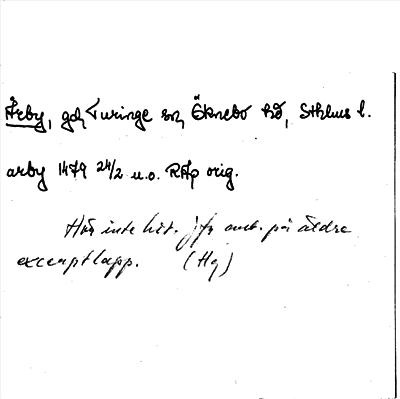 Årby, gd, Turinge sn, Öknebo hd, Sthlms l.
arby 1479 24/2 u.o. RAp orig.
Hör inte hit. jfr ant. på äldre
excerptlapp. (Hg)